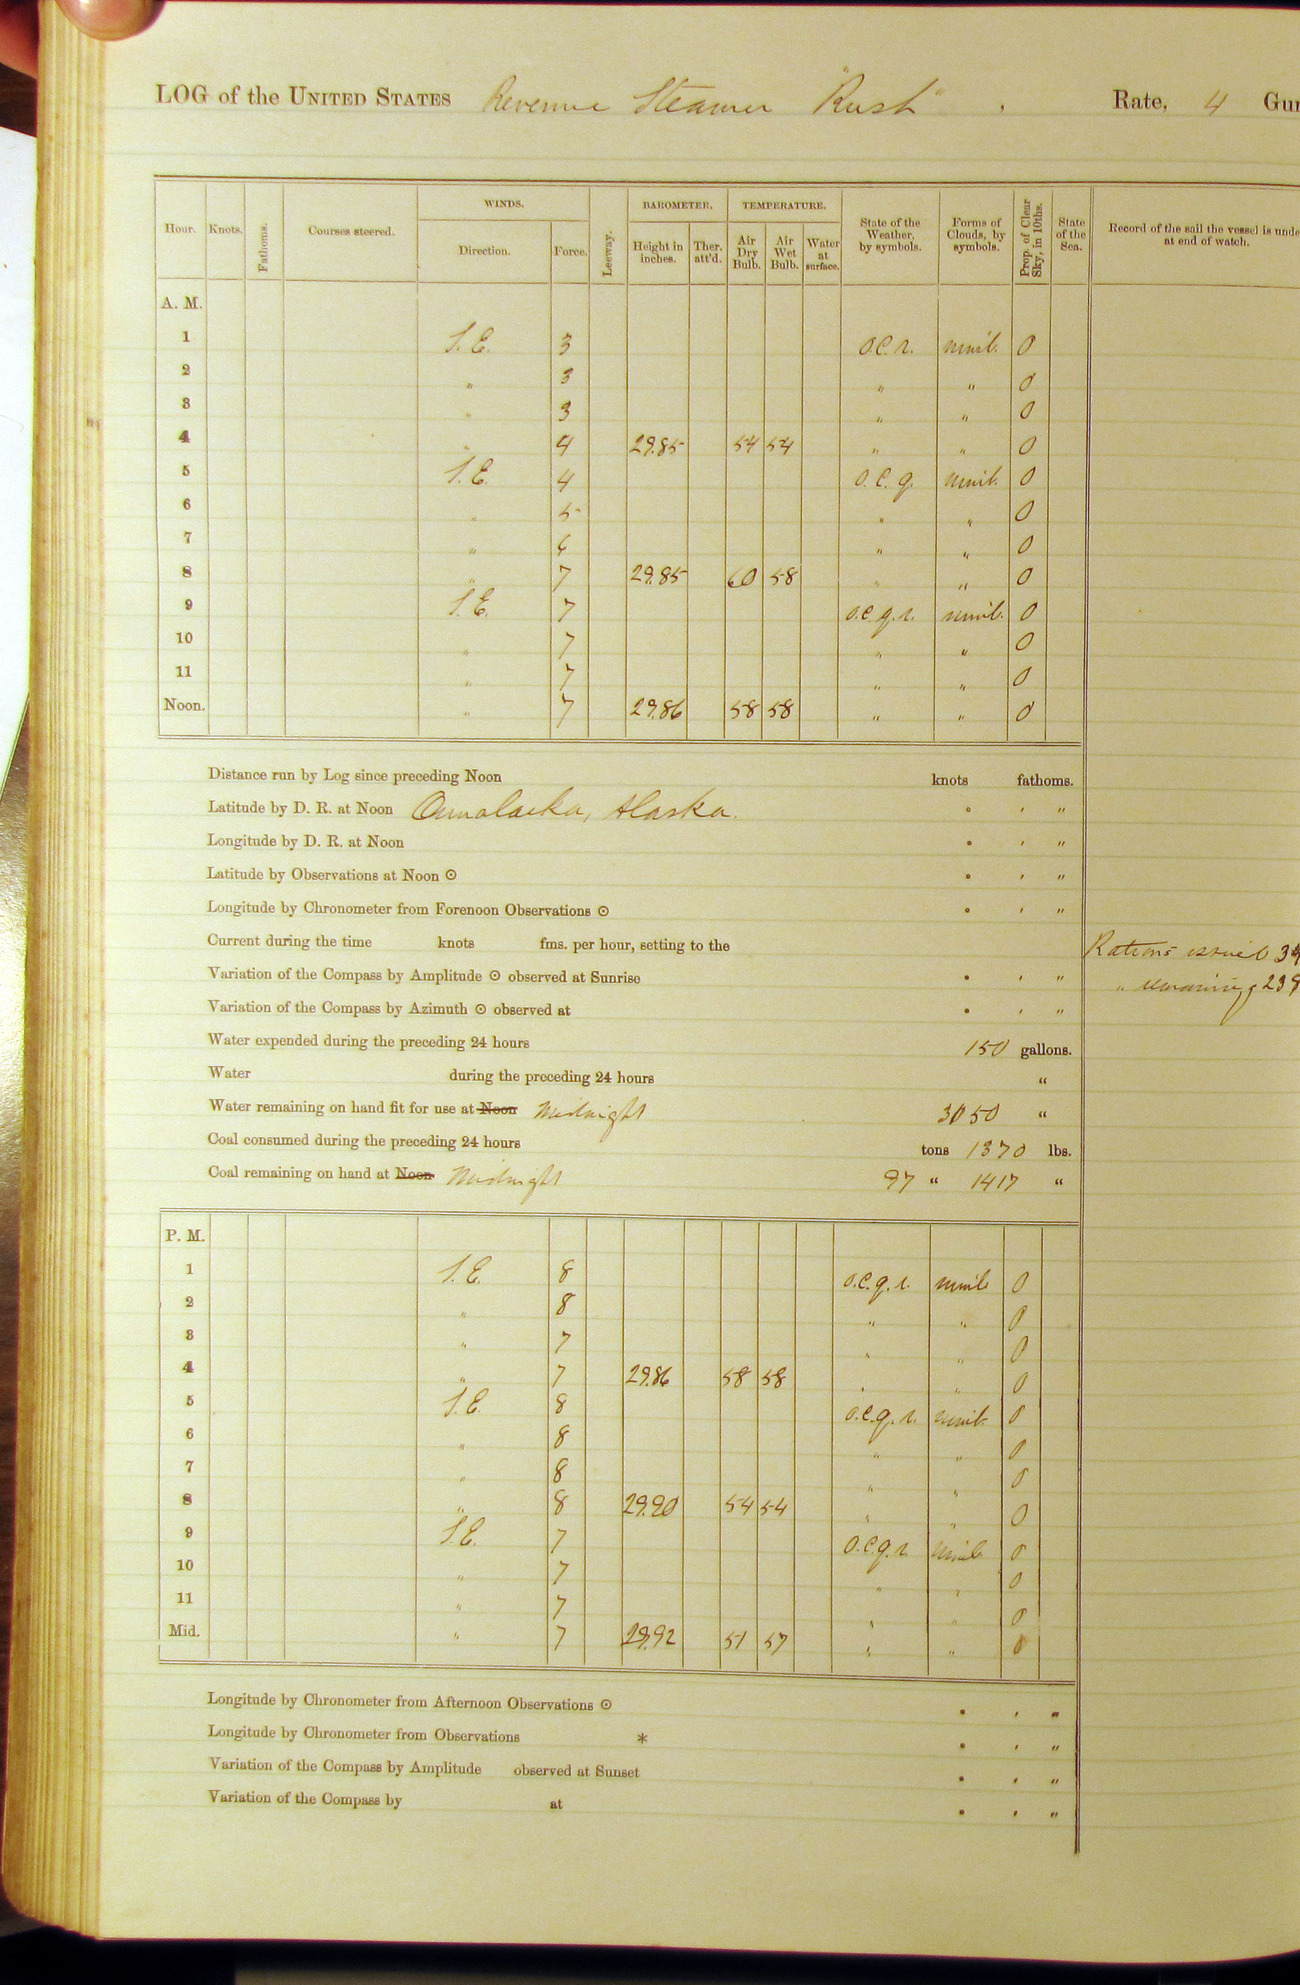 LOG of the UNITED STATES Revenue Steamer "Rush". Rate, 4 Gun
Hour. Knots. Fathoms. Courses steered. WINDS. Direction. Force. Leeway. BAROMETER. Height in inches. Ther. att'd. TEMPERATURE. Air Dry Bulb. Air Wet Bulb. Water at surface. State of the Weather, by symbols. Forms of Clouds, by symbols. Prop. of Clear Sky, in 10ths. State of the Sea. Record of the sail the vessel is unde
at end of watch.
A. M.
1 S.E. 3 o.c.r. nimb. 0
2 " 3 " " 0
3 " 3 " " 0
4 " 4 29.85 54 54 " " 0
5 S.E. 4 o.c.q. nimb. 0
6 " 5 " " 0
7 " 6 " " 0
8 " 7 29.85 60 58 " " 0
9 S.E. 7 o.c.q.r. nimb. 0
10 " 7 " " 0
11 " 7 " " 0
Noon. " 7 29.86 58 58 " " 0
Distance run by Log since preceding Noon knots fathoms.
Latitude by D. R. at Noon Ounalaska, Alaska. ° ′ ″
Longitude by D. R. at Noon ° ′ ″
Latitude by Observations at Noon ☉ ° ′ ″
Longitude by Chronometer from Forenoon Observations ☉ ° ′ ″
Current during the time knots fms. per hour, setting to the
Rations issued 34
Variation of the Compass by Amplitude ☉ observed at Sunrise ° ′ ″
" remaining 239
Variation of the Compass by Azimuth ☉ observed at ° ′ ″
Water expended during the preceding 24 hours 150 gallons.
Water during the preceding 24 hours "
Water remaining on hand fit for use at Noon Midnight 3050 "
Coal consumed during the preceding 24 hours tons 1370 lbs.
Coal remaining on hand at Noon Midnight 97 " 1417 "
P. M.
1 S.E. 8 o.c.q.r. nimb 0
2 " 8 " " 0
3 " 7 " " 0
4 " 7 29.86 58 58 " " 0
5 S.E. 8 o.c.q.r. nimb. 0
6 " 8 " " 0
7 " 8 " " 0
8 " 8 29.90 54 54 " " 0
9 S.E. 7 o.c.q.r. nimb. 0
10 " 7 " " 0
11 " 7 " " 0
Mid. " 7 29.92 51 57 " " 0
Longitude by Chronometer from Afternoon Observations ☉ ° ′ ″
Longitude by Chronometer from Observations * ° ′ ″
Variation of the Compass by Amplitude observed at Sunset ° ′ ″
Variation of the Compass by at ° ′ ″